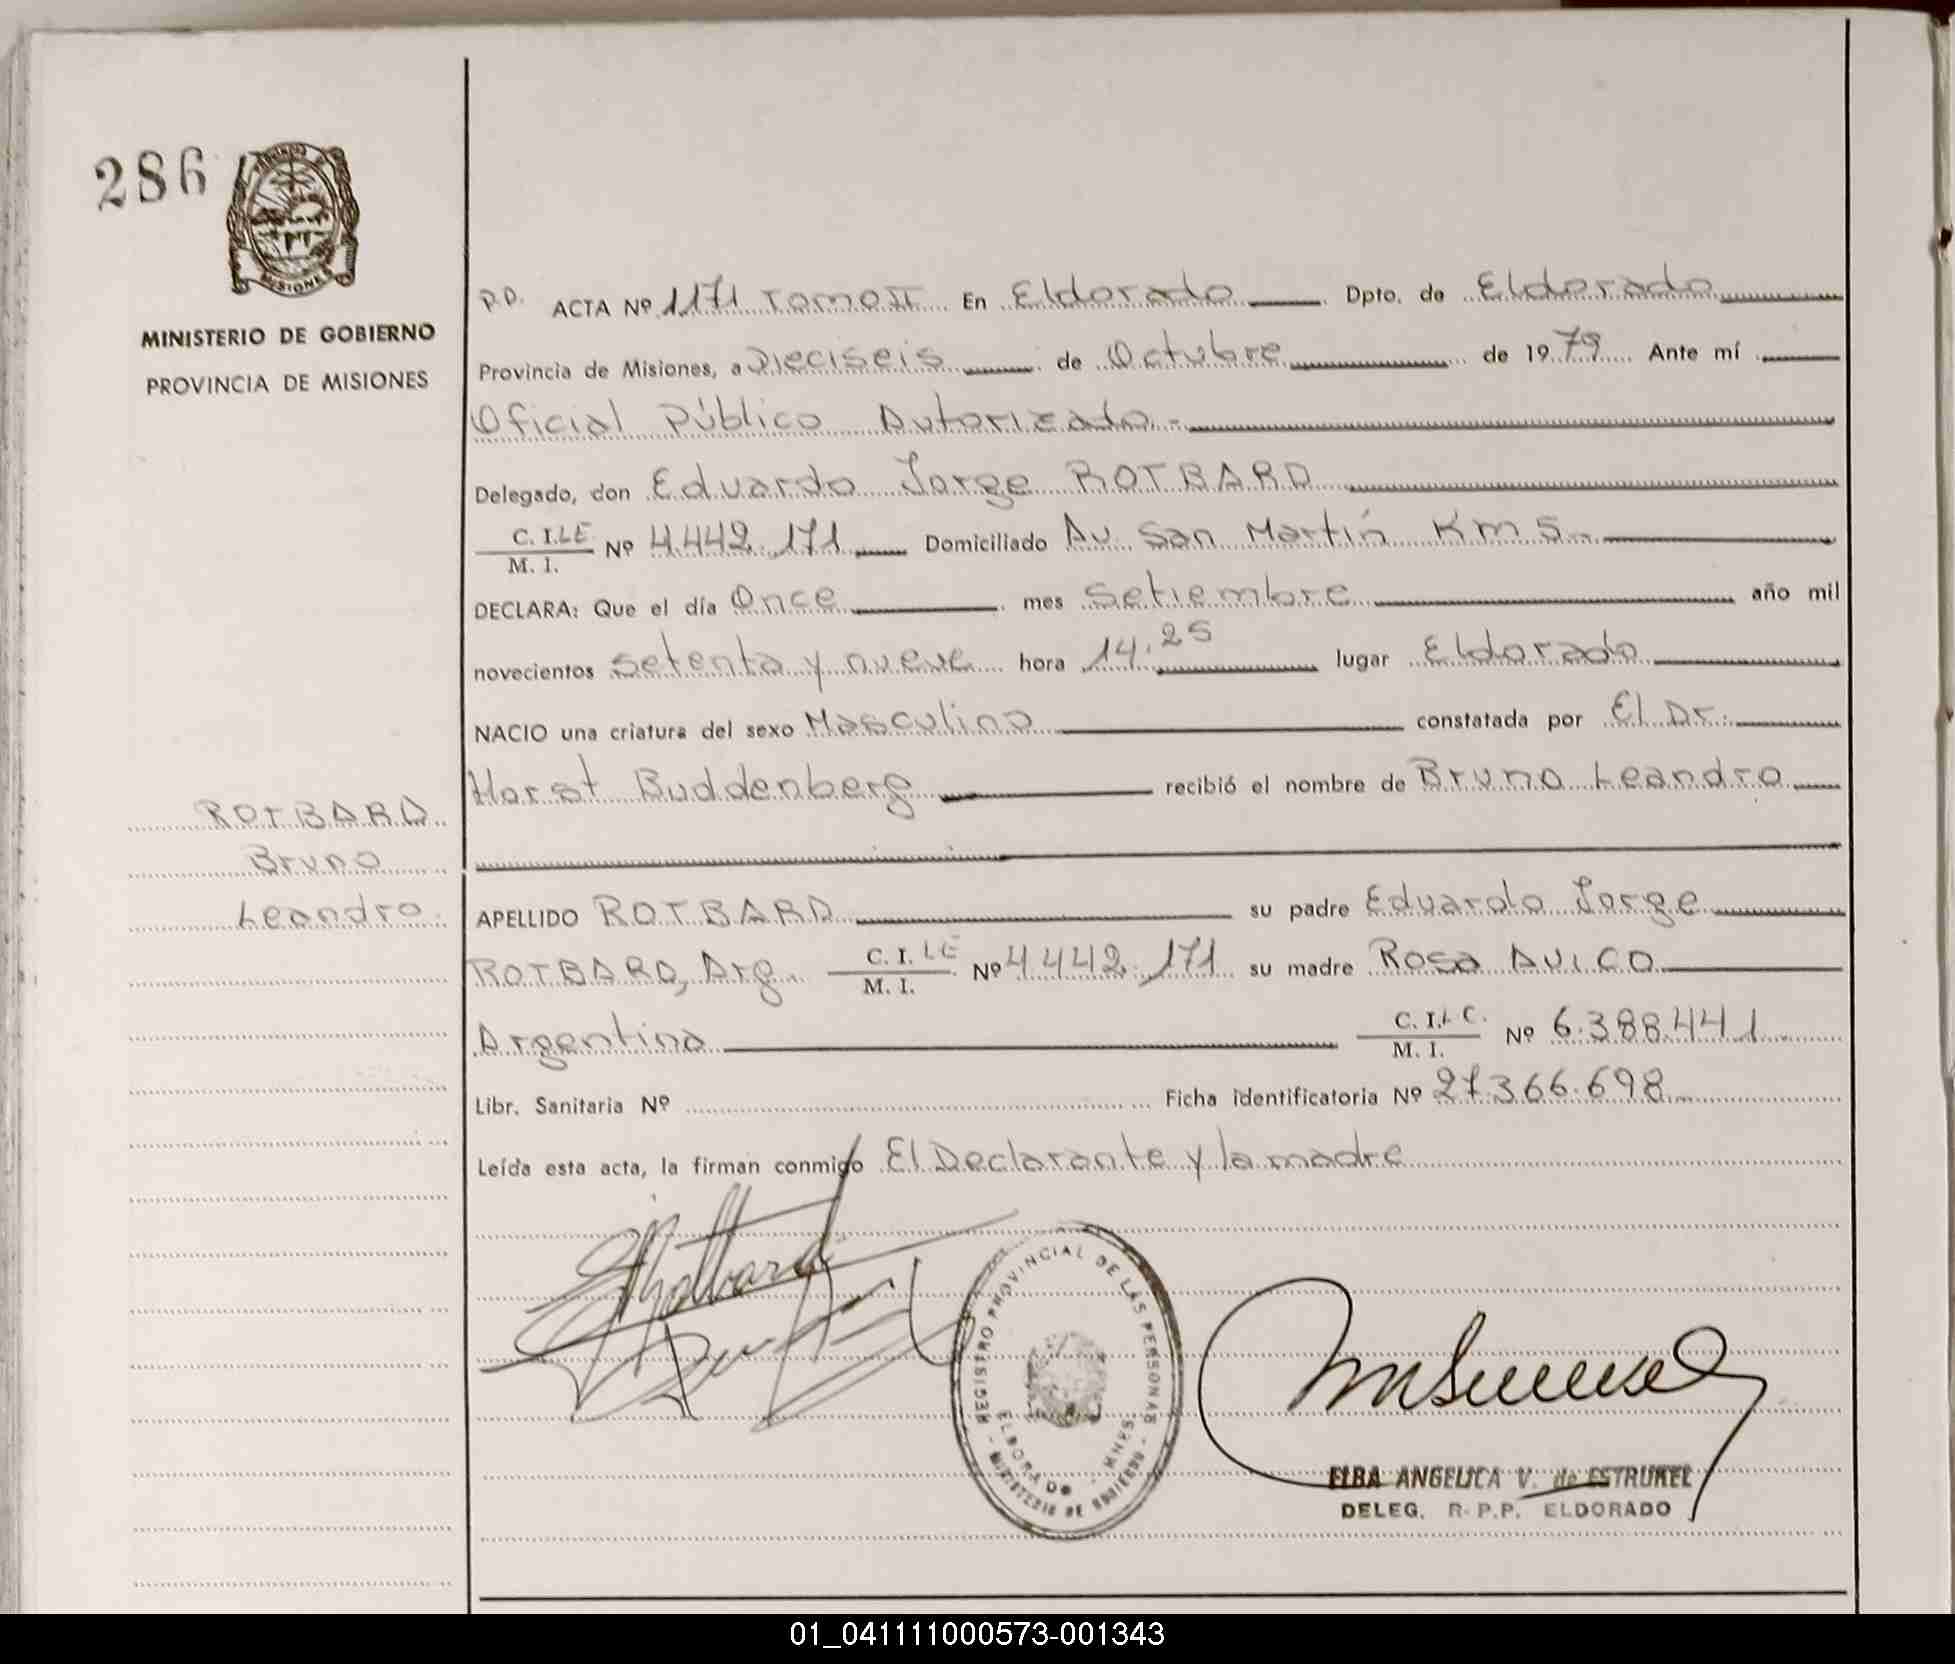 286
MISIONES
MINISTERIO DE GOBIERNO
PROVINCIA DE MISIONES
P.D. ACTA Nº 1171 Tomo II En Eldorado Dpto. de Eldorado
Provincia de Misiones, a Dieciseis de Octubre de 1979 Ante mí
Oficial Público Autorizado.-
Delegado, don Eduardo Jorge ROTBARD
C. I. LE
M. I. Nº 4.442.171 Domiciliado Av. San Martín Km 5.-
DECLARA: Que el día Once mes Setiembre año mil
novecientos setenta y nueve hora 14.25 lugar Eldorado
NACIO una criatura del sexo Masculino constatada por El Dr.
Horst Buddenberg recibió el nombre de Bruno Leandro
ROTBARD
Bruno
Leandro.
APELLIDO ROTBARD su padre Eduardo Jorge
ROTBARD, Arg. C. I. LE
M. I. Nº 4.442.171 su madre Rosa AVICO
Argentina C. I. L C.
M. I. Nº 6.388.441
Libr. Sanitaria Nº Ficha identificatoria Nº 27.366.698
Leída esta acta, la firman conmigo El Declarante y la madre
REGISTRO PROVINCIAL DE LAS PERSONAS
ELDORADO - MNES.
MINISTERIO DE GOBIERNO
ELBA ANGELICA V. de ESTRUKEL
DELEG. R.P.P. ELDORADO
01_041111000573-001343